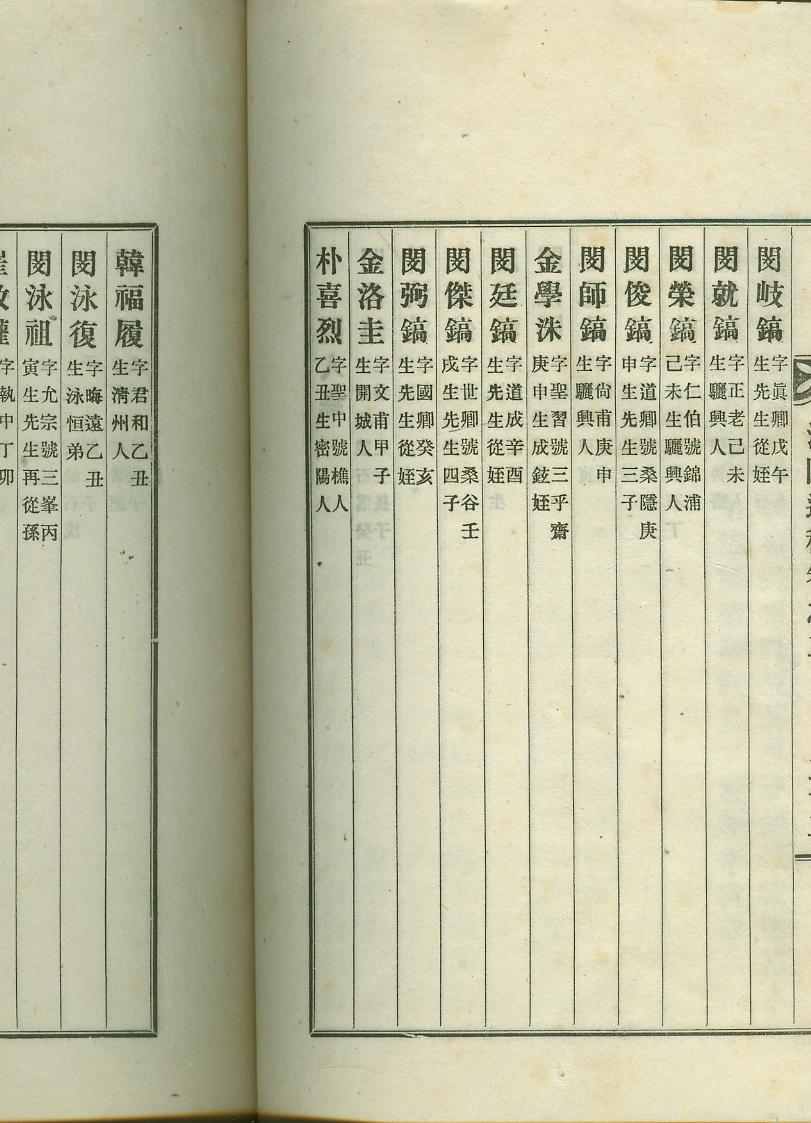 閔岐鎬
字眞卿戊午
生先生從姪
閔就鎬
字正老己未
生驪興人
閔榮鎬
字仁伯號錦浦
己未生驪興人
閔俊鎬
字道卿號桑隱庚
申生先生三子
閔師鎬
字尙甫庚申
生驪興人
金學洙
字聖習號三乎齋
庚申生成鉉姪
閔廷鎬
字道成辛酉
生先生從姪
閔傑鎬
字世卿號桑谷壬
戌生先生四子
閔弼鎬
字國卿癸亥
生先生從姪
金洛圭
字文甫甲子
生開城人
朴喜烈
字聖中號樵人
乙丑生密陽人
韓福履
字君和乙丑
生淸州人
閔泳復
字晦遠乙丑
生泳恒弟
閔泳祖
字允宗號三峯丙
寅生先生再從孫
字執中丁卯